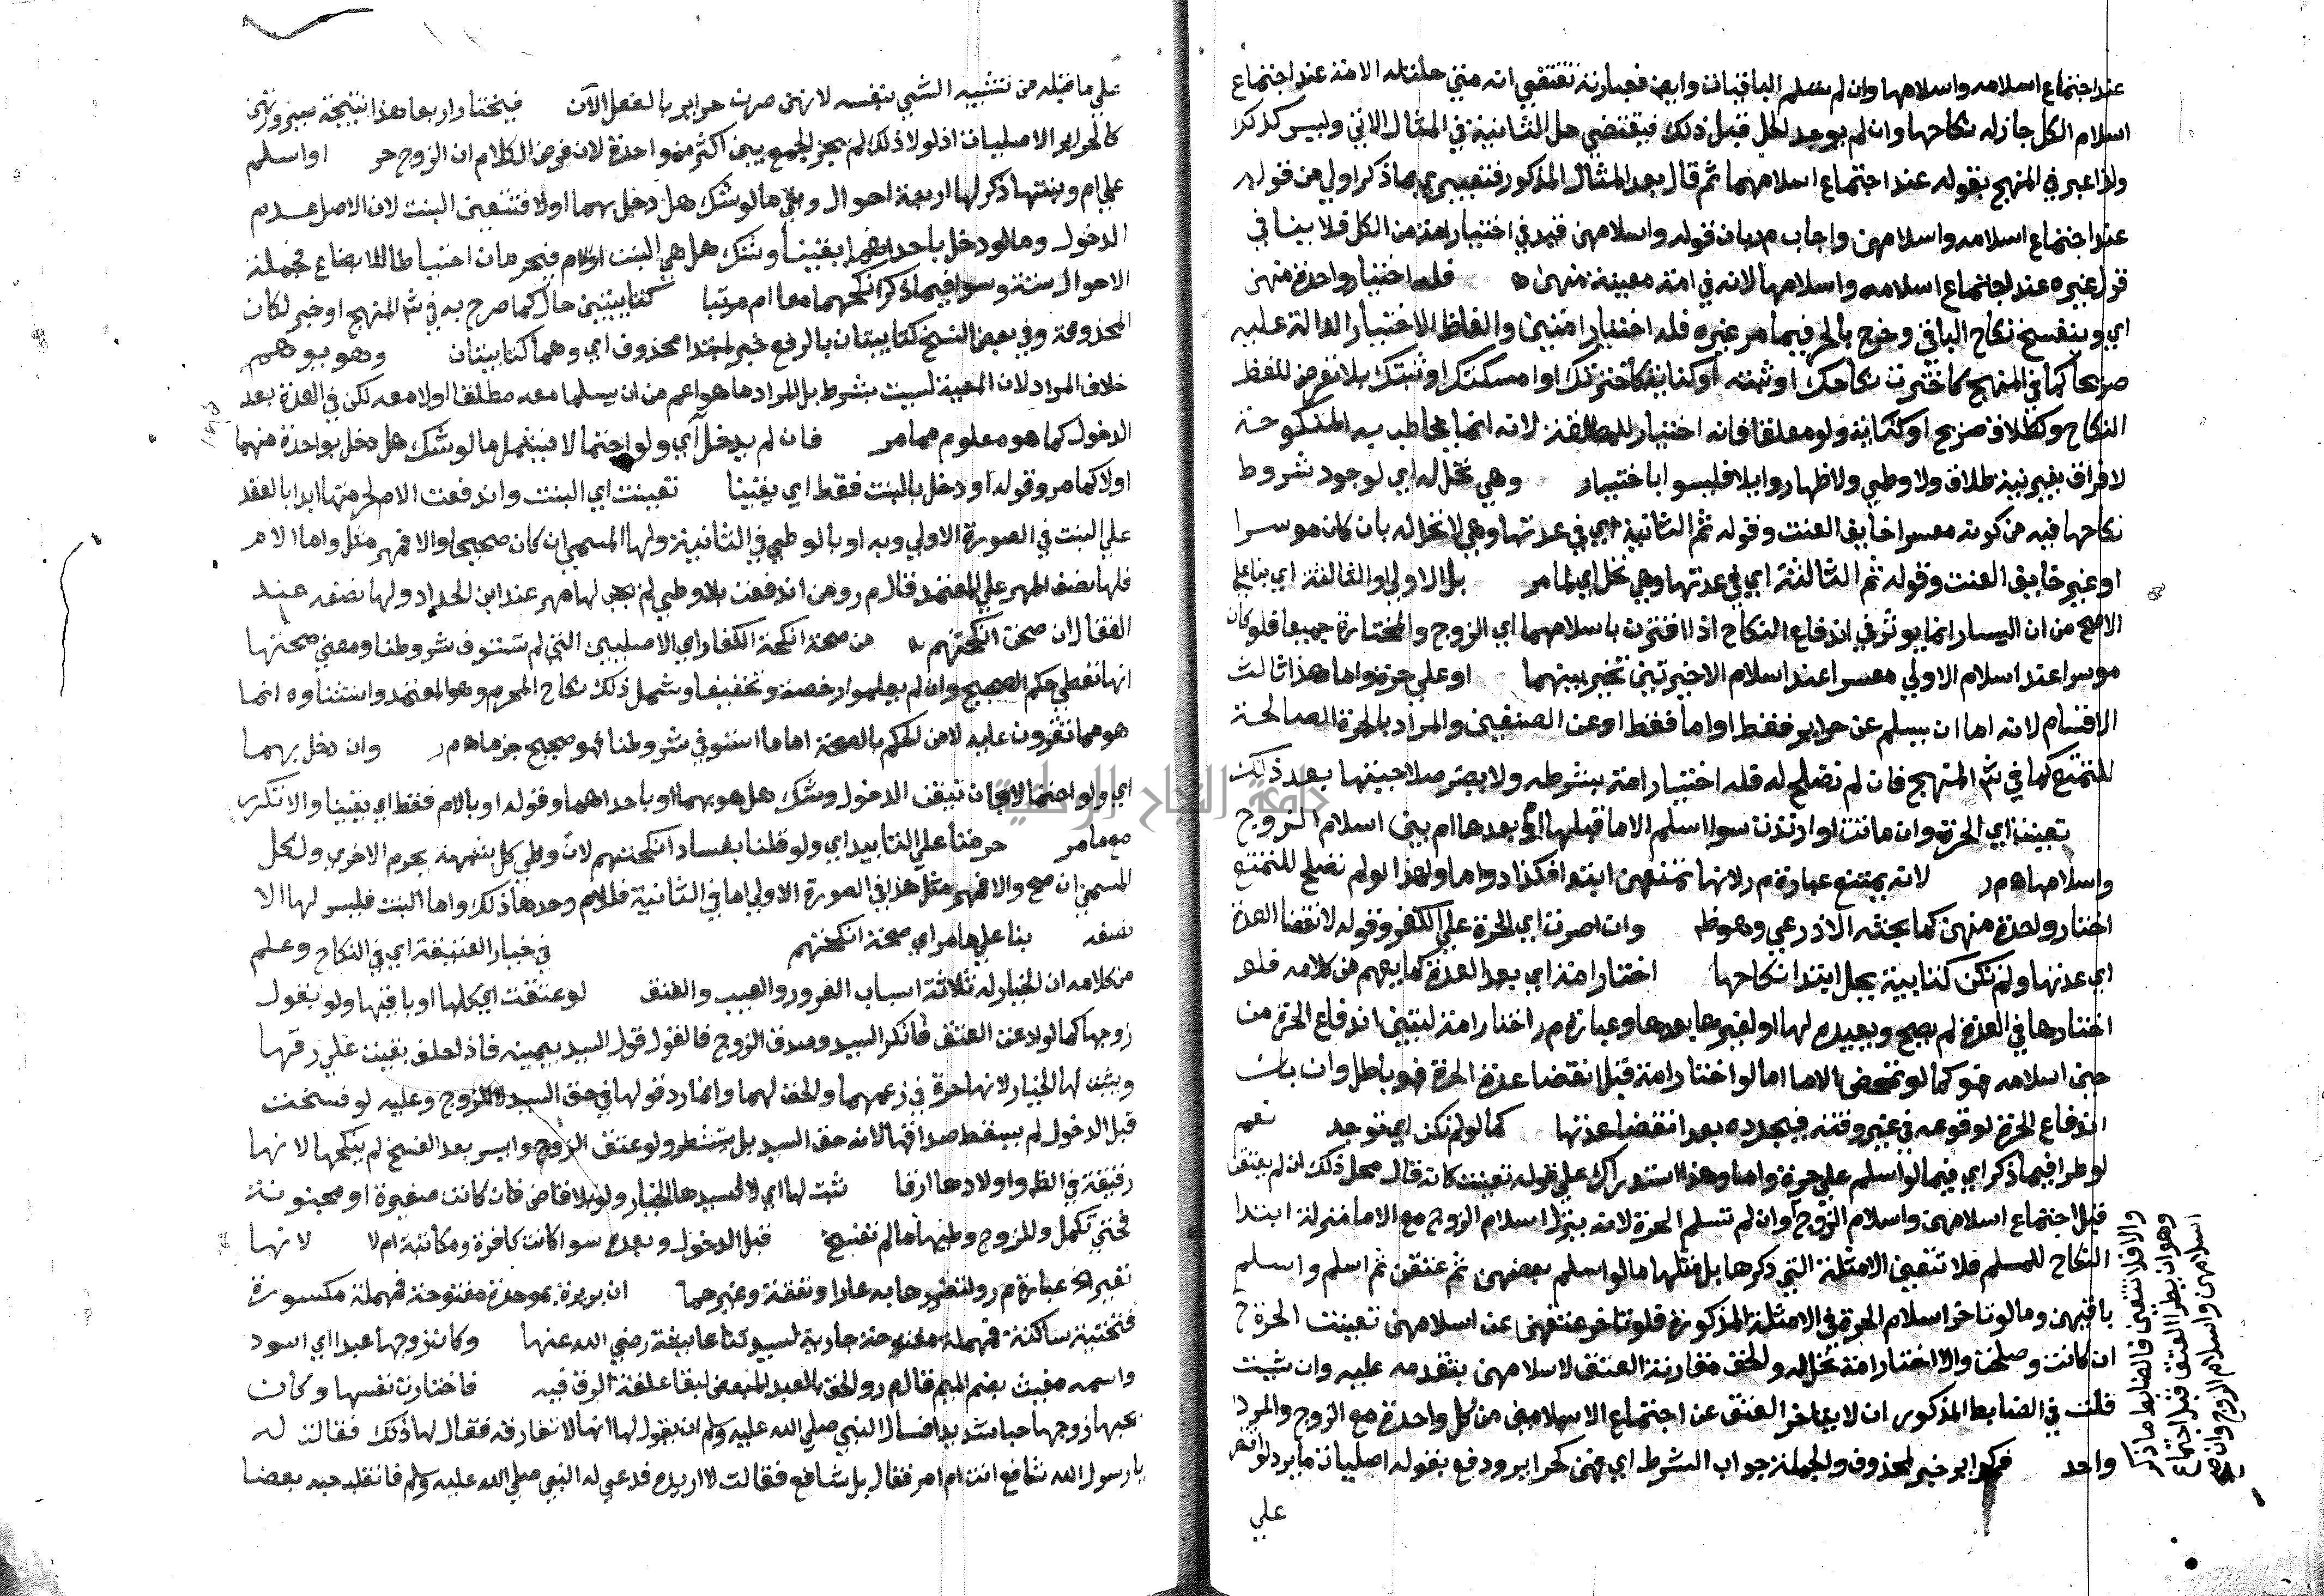 عند اجتماع اسلامه واسلامها وان لم تسلم الباقيات وايض فعبارته تقتضي انه متى حلت له الامة عند اجتماع
اسلام الكل جاز له نكاحها وان لم يوجد الحل قبل ذلك فيقتضي حل الثانية في المثال الاتي وليس كذلك
ولذا عبر في المنهج بقوله عند اجتماع اسلامهما ثم قال بعد المثال المذكور فتعبيري بما ذكر اولى من قوله
عند اجتماع اسلامه واسلامهن واجاب م ر بان قوله واسلامهن قيد في اختيار امة من الكل فلا ينافي
قول غيره عند اجتماع اسلامه واسلامها لانه في امة معينة منهن اه فله اختيار واحدة منهن
اي وينفسخ نكاح الباقي وخرج بالحر فيما مر غيره فله اختيار اثنتين والفاظ الاختيار الدالة عليه
صريحا كما في المنهج كاخترت نكاحك او ثبته او كناية كاخترتك او امسكتك او ثبتك بلا تعرض للفظ
النكاح وكطلاق صريح او كناية ولو معلقا فانه اختيار للمطلقة لانه انما يخاطب به المنكوحة
لا فراق بغير نية طلاق ولا وطي ولا ظهار وايلا فليسوا باختيار وهي تحل له اي لوجود شروط
نكاحها فيه من كونه معسرا خايف العنت وقوله ثم الثانية اي في عدتها وهي لا تحل له بان كان موسرا
او غير خايف العنت وقوله ثم الثالثة اي في عدتها وهي تحل اي لما مر بل الاولى او الثالثة اي بنا على
الاصح من ان اليسار انما يوثر في اندفاع النكاح اذا اقترن باسلامهما اي الزوج والمختارة جميعا فلو كان
موسرا عند اسلام الاولى معسرا عند اسلام الاخيرتين تخير بينهما او على حرة واما هذا ثالث
الاقسام لانه اما ان يسلم عن حراير فقط او اما فقط او عن الصنفين والمراد بالحرة الصالحة
للتمتع كما في ش المنهج فان لم تصلح له فله اختيار امة بشرطه ولا يضر صلاحيتها بعد ذلك
تعينت اي الحرة وان ماتت او ارتدت سوا اسلم الاما قبلها او بعدها ام بين اسلام الزوج
واسلامها اه م ر لانه يمتنع عبارة م ر لانها تمنعهن ابتدا فكذا دواما ولهذا لو لم تصلح للتمتع
اختار واحدة منهن كما بحثه الاذرعي وهو ظ وان اصرت اي الحرة على الكفر وقوله لانقضا العدة
اي عدتها ولم تكن كتابية يحل ابتدا نكاحها اختار امة اي بعد العدة كما يفهم من كلامه فلو
اختارها في العدة لم يصح ويعيده لها او لغيرها بعدها وعبارة م ر اختار امة لتبين اندفاع الحرة من
حين اسلامه فهو كما لو تمحض الاما اما لو اختار امة قبل انقضا عدة الحرة فهو باطل وان بان
اندفاع الحرة لوقوعه في غير وقته فيجدده بعد انقضا عدتها كما لو لم تكن اي توجد نعم
لو طرا فيما ذكر اي فيما لو اسلم على حرة واما وهذا استدراك على قوله تعينت كانه قال محل ذلك ان لم يعتقن
قبل اجتماع اسلامهن واسلام الزوج آوان لم تسلم الحرة لانه ينزل اسلام الزوج مع الاما منزلة ابتدا
النكاح للمسلم فلا تتعين الامثلة التي ذكرها بل مثلها ما لو اسلم بعضهن ثم عتقن ثم اسلم واسلم
باقيهن وما لو تاخر اسلام الحرة في الامثلة المذكورة فلو تاخر عتقهن عن اسلامهن تعينت الحرة ح
ان كانت وصلحت والا اختار امة تحل له والحق مقارنة العتق لاسلامهن بتقدمه عليه وان شيت
قلت في الضابط المذكور ان لا يتاخر العتق عن اجتماع الاسلامين من كل واحدة مع الزوج والمراد
واحد فكحراير خبر لمحذوف والجملة جواب الشرط اي فهن كحراير ودفع بقوله اصليات ما يرد
على
والا فلا تتعين فالضابط ما ذكر
وهو ان يطرا العتق قبل اجتماع
اسلامهن واسلام الزوج وان
على ما قبله من تشبيه الشي بنفسه لانهن صرن حراير بالفعل الآن فيختار اربعا هذا نتيجة
كالحراير الاصليات اذ لولا ذلك لم يجز الجمع بين اكثر من واحدة لان فرض الكلام ان الزوج حر او اسلم
على ام وبنتها ذكر لها اربعة احوال وبقي ما لو شك هل دخل بهما اولا فتتعين البنت لان الاصل عدم
الدخول وما لو دخل باحداهما يقينا وشك هل هي البنت او الام فيحرمان احتياطا للابضاع فجملة
الاحوال ستة وسوا فيما ذكر انكحهما معا ام مرتبا كتابيتين حال كما صرح به في ش المنهج او خبر لكان
المحذوفة وفي بعض النسخ كتابيتان بالرفع خبر لمبتدا محذوف اي وهما كتابيتان وهو يوهم
خلاف المراد لان المعية ليست بشرط بل المراد ما هو اعم من ان يسلما معه مطلقا اولا معه لكن في العدة بعد
الدخول كما هو معلوم مما مر فان لم يدخل اي ولو احتمالا فيشمل ما لو شك هل دخل بواحدة منهما
اولا كما مر وقوله او دخل بالبنت فقط اي يقينا تعينت اي البنت واندفعت الام لحرمتها ابدا بالعقد
على البنت في الصورة الاولى وبه او بالوطي في الثانية ولها المسمى ان كان صحيحا والا فمهر مثل واما الام
فلها نصف المهر على المعتمد قال م ر ومن اندفعت بلا وطي لم يجب لها مهر عند ابن الحداد ولها نصفه عند
القفال ان صحت انكحتهم من صحة انكحة الكفار اي الاصليين التي لم تستوف شروطنا ومعنى صحتها
انها تعطى حكم الصحيح وان لم يعلموا رخصة وتخفيفا وشمل ذلك نكاح المحرم وهو المعتمد واستثناوه انما
هو مما تقرون عليه لا من الحكم بالصحة اما ما استوفى شروطنا فهو صحيح جزما اه م ر وان دخل بهما
اي ولو احتمالا بان تيقن الدخول وشك هل هو بهما او باحداهما وقوله او بالام فقط اي يقينا والا تكرر
مع ما مر حرمتا على التابيد اي ولو قلنا بفساد انكحتهم لان وطي كل بشبهة يحرم الاخرى ولكل
المسمى ان صح والا فمهر مثل هذا في الصورة الاولى اما في الثانية فللام وحدها ذلك واما البنت فليس لها الا
نصفه بنا على ما مر اي صحة انكحتهم في خيار العتيقة اي في النكاح وعلم
من كلامه ان الخيار له ثلاثة اسباب الغرور والعيب والعتق لو عتقت اي كلها او باقيها ولو بقول
زوجها كما لو ادعت العتق فانكر السيد وصدق الزوج فالقول قول السيد بيمينه فاذا حلف بقيت على رقها
ويثبت لها الخيار لانها حرة في زعمهما والحق لهما وانما رد قولها في حق السيد لا الزوج وعليه لو فسخت
قبل الدخول لم يسقط صداقها لانه حق السيد بل يتشطر ولو عتق الزوج وايسر بعد الفسخ لم ينكحها لانها
رقيقة في الظ واولادها ارقا ثبت لها اي لا لسيدها الخيار ولو بلا قاض فان كانت صغيرة او مجنونة
فحتى تكمل وللزوج وطيها ما لم تفسخ قبل الدخول وبعده سوا كانت كافرة ومكاتبة ام لا لانها
تغير الخ عبارة م ر ولتضررها به عارا ونفقة وغيرهما ان بريرة بموحدة مفتوحة فمهملة مكسورة
فتحتية ساكنة فمهملة مفتوحة جارية لسيدتنا عايشة رضي الله عنها وكان زوجها عبدا اي اسود
واسمه مغيث بضم الميم قال م ر والحق بالعبد المبعض لبقا علقة الرق فيه فاختارت نفسها وكان
يحبها زوجها حبا شديدا فسال النبي صلى الله عليه وسلم ان يقول لها انها لا تفارقه فقال لها ذلك فقالت له
يا رسول الله شافع انت ام امر فقال بل شافع فقالت لا اريده فدعى له النبي صلى الله عليه وسلم فانقلب حبه بغضا
جامعة النجاح الوطنية